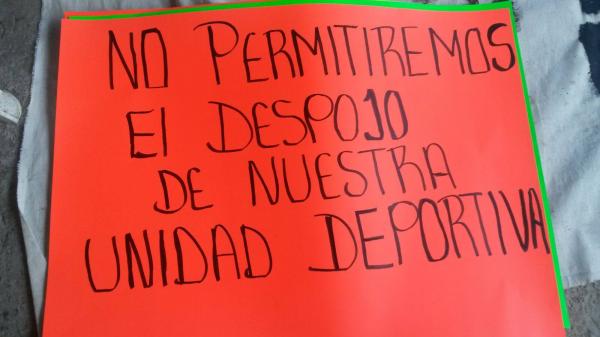 NO PERMITIREMOS
El DESPOJO
DE NUESTRA
UNIDAD DEPORTIVA